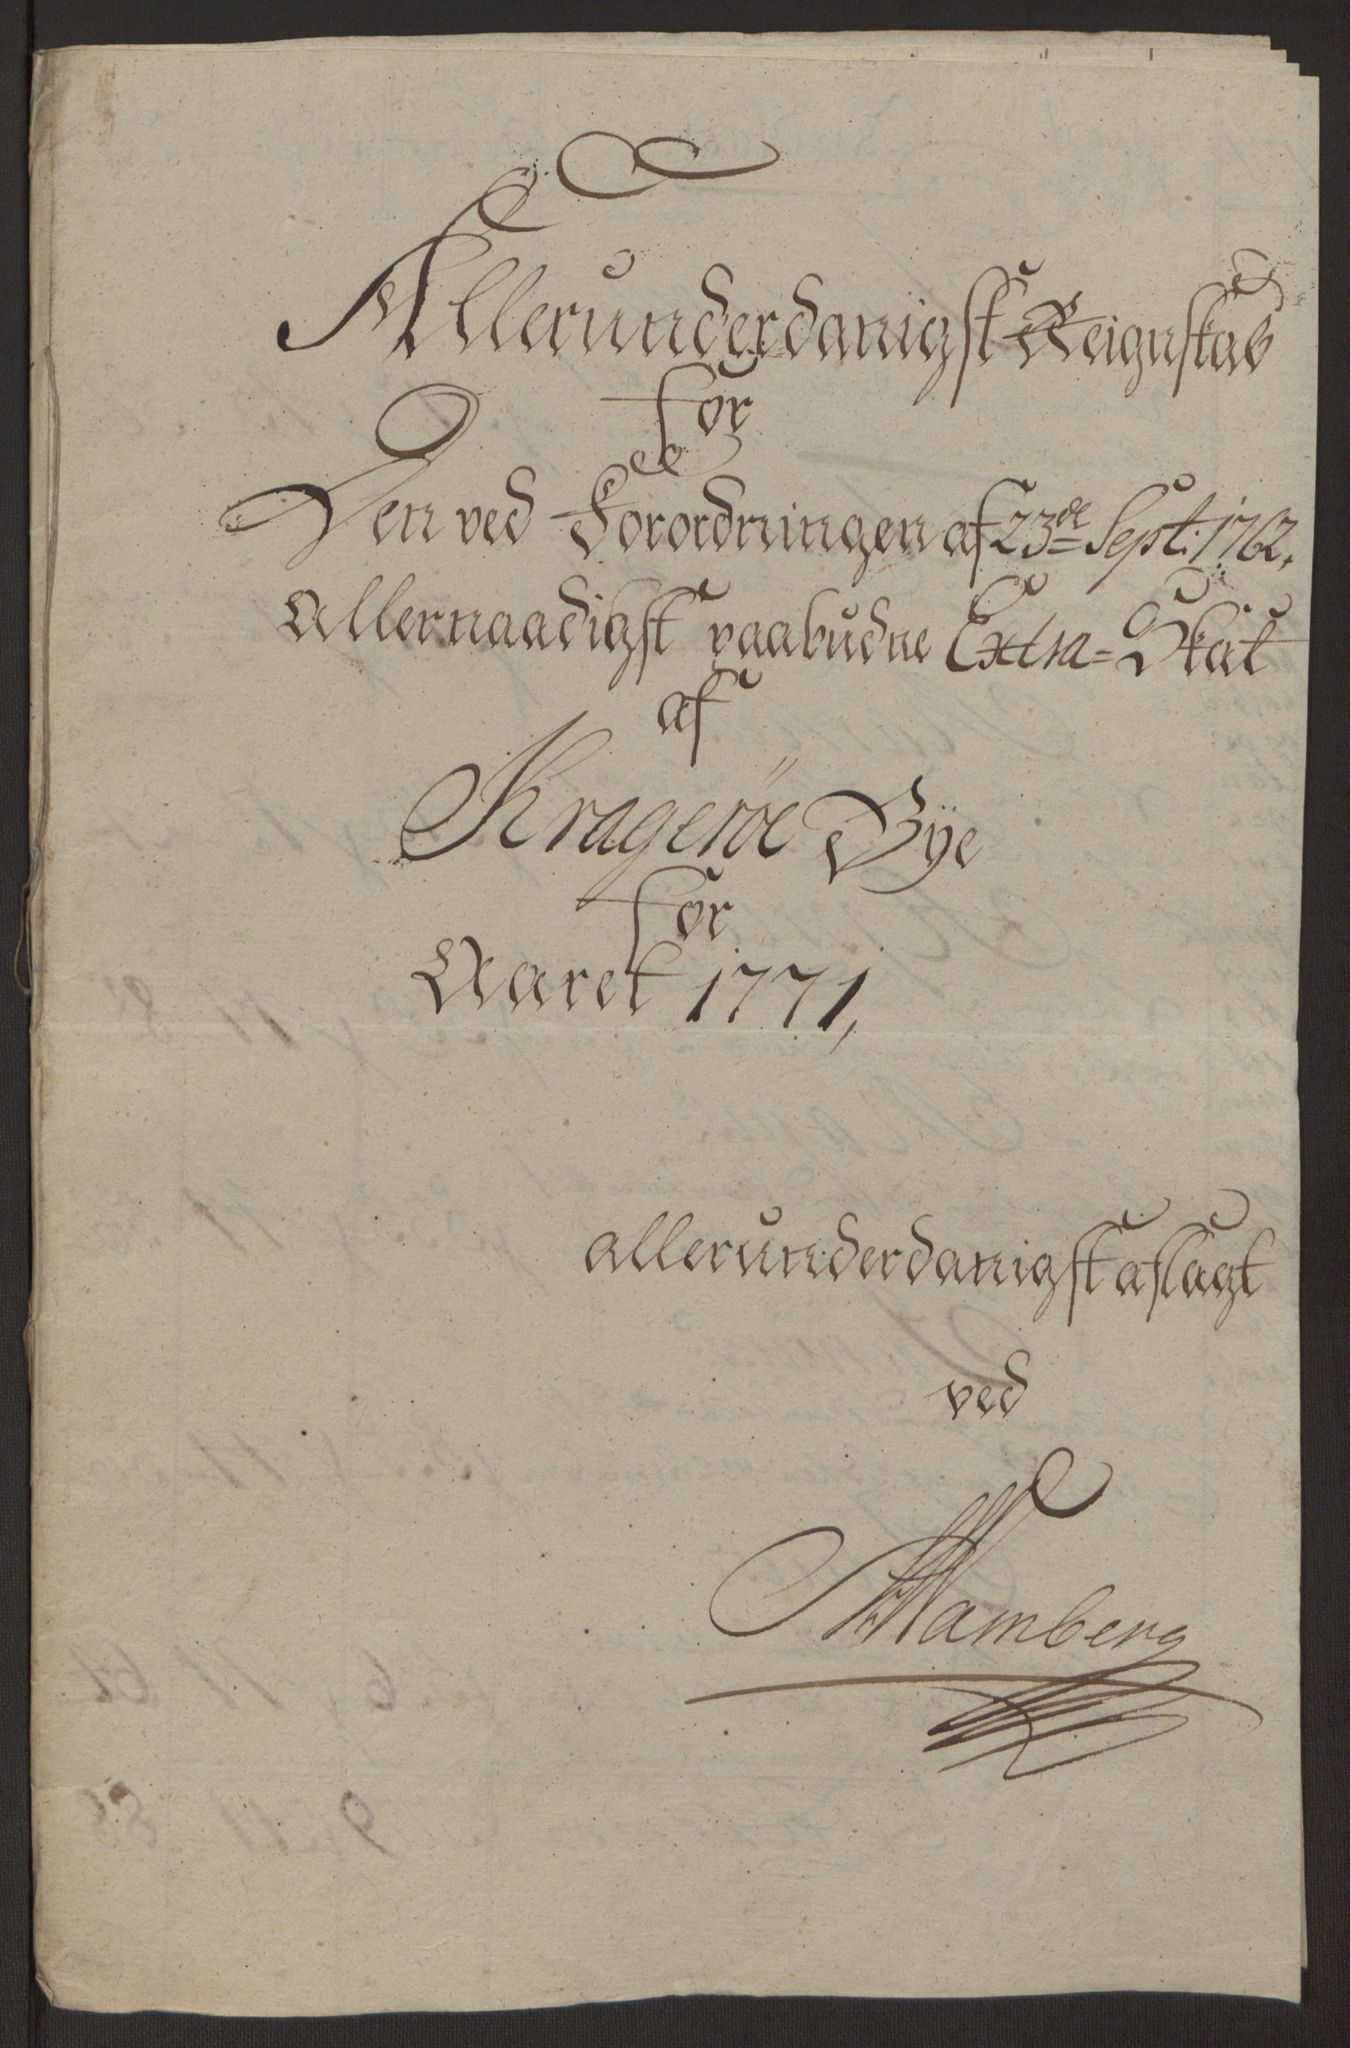 Allerunderdanigst Reignskab
For
Den ved Forordningen af 23de Sept: 1762.
Allernaadigst paabudne Extra=Skat
af
Kragerøe Bÿe
For
Aaret 1771,
allerunderdanigst aflagt
ved
Wamberg